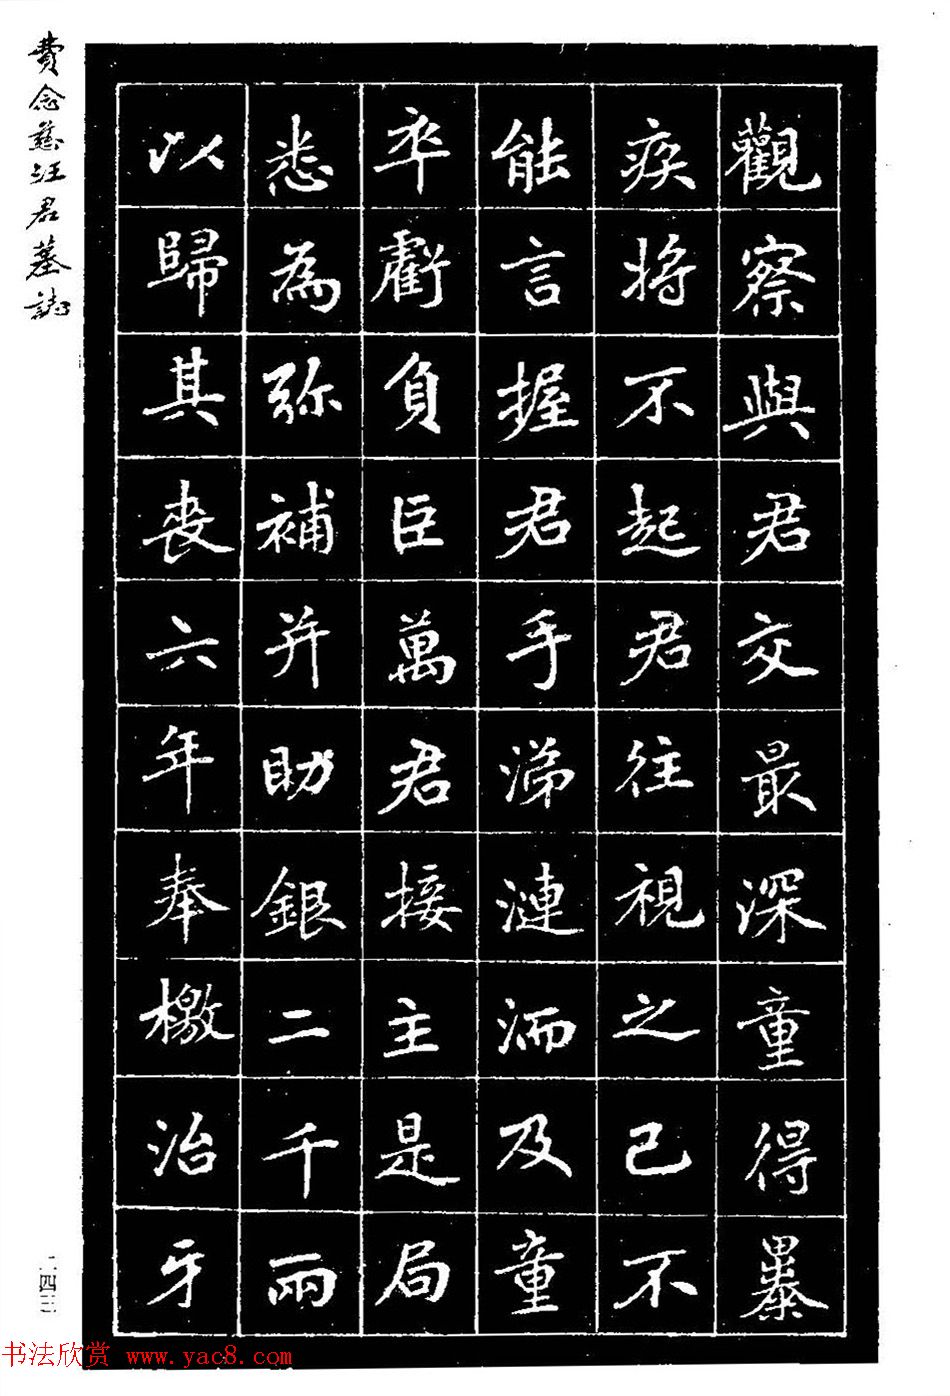 費念慈汪君墓誌
觀察與君交最深童得暴
疾將不起君往視之已不
能言握君手涕漣洏及童
卒虧負巨萬君接主是局
悉為弥補并助銀二千兩
以歸其喪六年奉檄治牙
二四三
书法欣赏 www.yac8.com